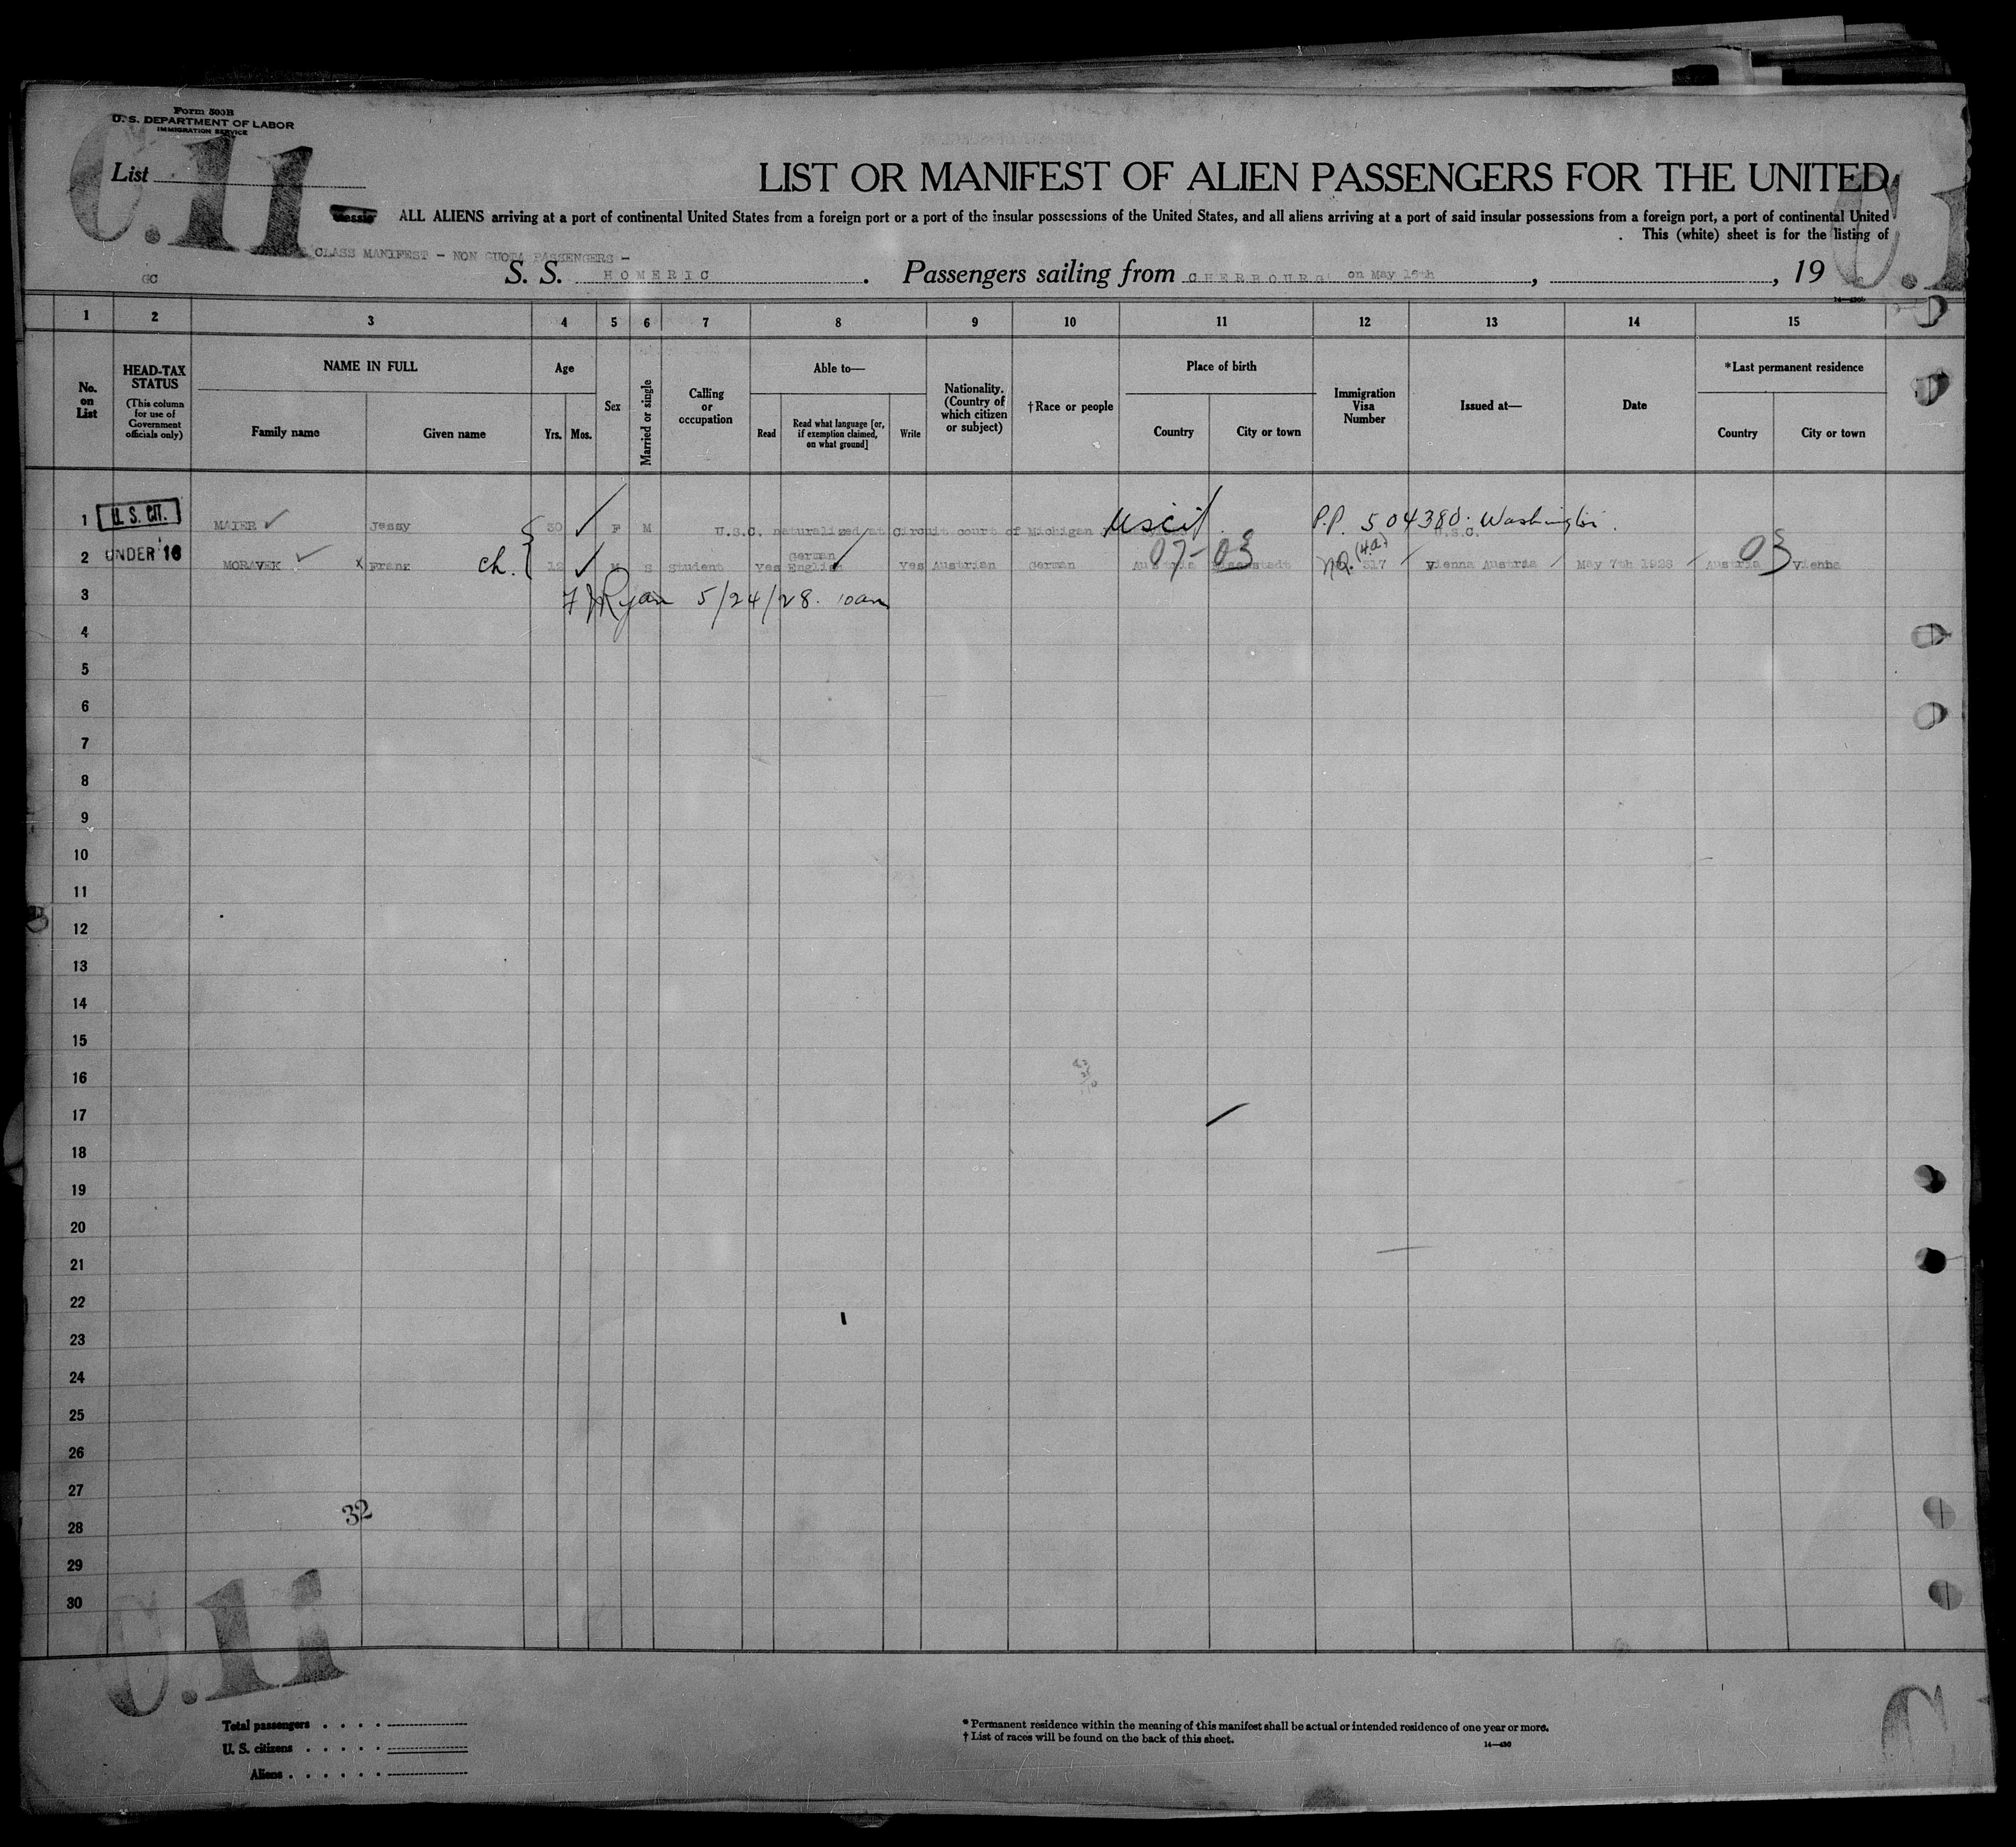 Form 500B
U. S. DEPARTMENT OF LABOR
IMMIGRATION SERVICE
C.11
List
LIST OR MANIFEST OF ALIEN PASSENGERS FOR THE UNITED
ALL ALIENS arriving at a port of continental United States from a foreign port or a port of the insular possessions of the United States, and all aliens arriving at a port of said insular possessions from a foreign port, a port of continental United
This (white) sheet is for the listing of
CLASS MANIFEST - NON QUOTA PASSENGERS -
GC
S. S. HOMERIC. Passengers sailing from CHERBOURG on May 16th, , 19
C.1
1 2 3 4 5 6 7 8 9 10 11 12 13 14 15
No. on List
HEAD-TAX STATUS
(This column for use of Government officials only)
NAME IN FULL
Family name Given name
Age
Yrs. Mos.
Sex
Married or single
Calling or occupation
Able to—
Read
Read what language [or, if exemption claimed, on what ground]
Write
Nationality. (Country of which citizen or subject)
†Race or people
Place of birth
Country City or town
Immigration Visa Number
Issued at—
Date
*Last permanent residence
Country City or town
1 U. S. CIT. MAIER ✓ Jessy 30 ✓ F M U.S.C. naturalized at Circuit court of Michigan uscit. P.P. 504380. Washington. U.S.C.
2 UNDER 16 MORAVEK ✓ x Frank ch. 12 ✓ M S Student Yes German English ✓ Yes Austrian German Austria 07-03 NQ. (4.a) 317 Vienna Austria May 7th 1928 Austria 03 Vienna
3 Ryan 5/24/28. 10am
4
5
6
7
8
9
10
11
12
13
14
15
16
17
18
19
20
21
22
23
24
25
26
27
28
29
30
32
C.11
Total passengers
U. S. citizens
Aliens
* Permanent residence within the meaning of this manifest shall be actual or intended residence of one year or more.
† List of races will be found on the back of this sheet.
14—430
C